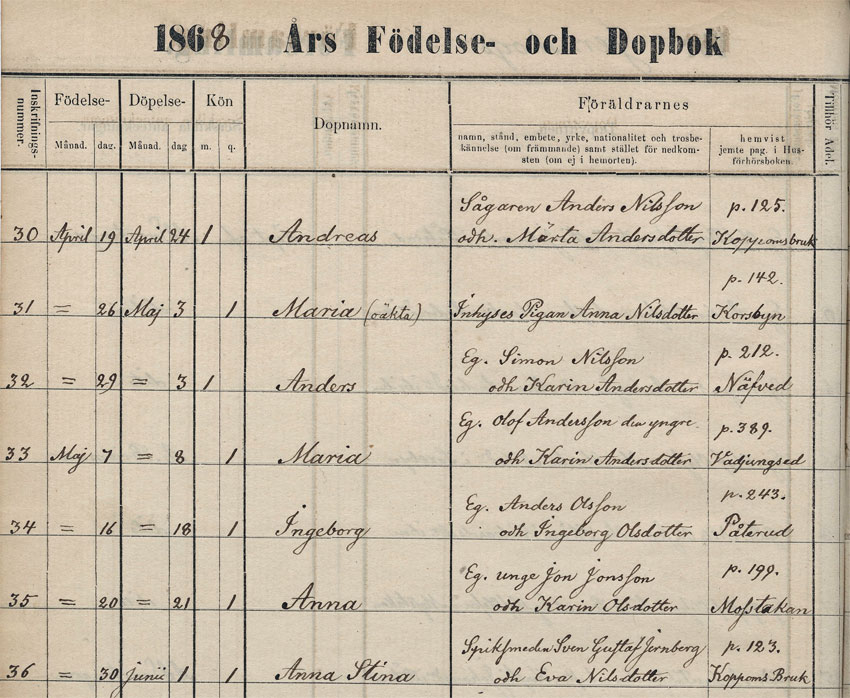 1868 Års Födelse- och Dopbok
Inskrifnings-
nummer.
Födelse-
Månad. dag.
Döpelse-
Månad. dag
Kön
m. q.
Dopnamn.
Föräldrarnes
namn, stånd, embete, yrke, nationalitet och trosbe-
kännelse (om främmande) samt stället för nedkom-
sten (om ej i hemorten).
hemvist
jemte pag. i Hus-
förhörsboken.
Tillhör Adel.
Sågaren Anders Nilsson p. 125.
30 April 19 April 24 1 Andreas och. Märta Andersdotter Koppomsbruk
p. 142.
31 = 26 Maj 3 1 Maria (oäkta) Inhyses Pigan Anna Nilsdotter Korsbyn
Eg. Simon Nilsson p. 212.
32 = 29 = 3 1 Anders och Karin Andersdotter Näfved
Eg. Olof Andersson den yngre p. 389.
33 Maj 7 = 8 1 Maria och Karin Andersdotter Vadjungsed
Eg. Anders Olsson p. 243.
34 = 16 = 18 1 Ingeborg och Ingeborg Olsdotter Påterud
Eg. unge Jon Jonsson p. 199.
35 = 20 = 21 1 Anna och Karin Olsdotter Mosstakan
Spiksmeden Sven Gustaf Jernberg p. 123.
36 = 30 junii 1 1 Anna Stina och Eva Nilsdotter Koppoms Bruk